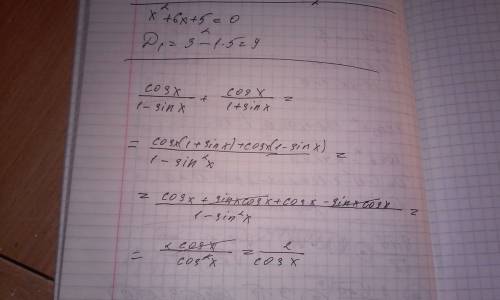 x²+6x+5=0
D₁=3²-1·5=9
cosx/(1-sinx) + cosx/(1+sinx) =
= (cosx(1+sinx)+cosx(1-sinx))/(1-sin²x) =
= (cosx+sinxcosx+cosx-sinxcosx)/(1-sin²x) =
= 2cosx/cos²x = 2/cosx